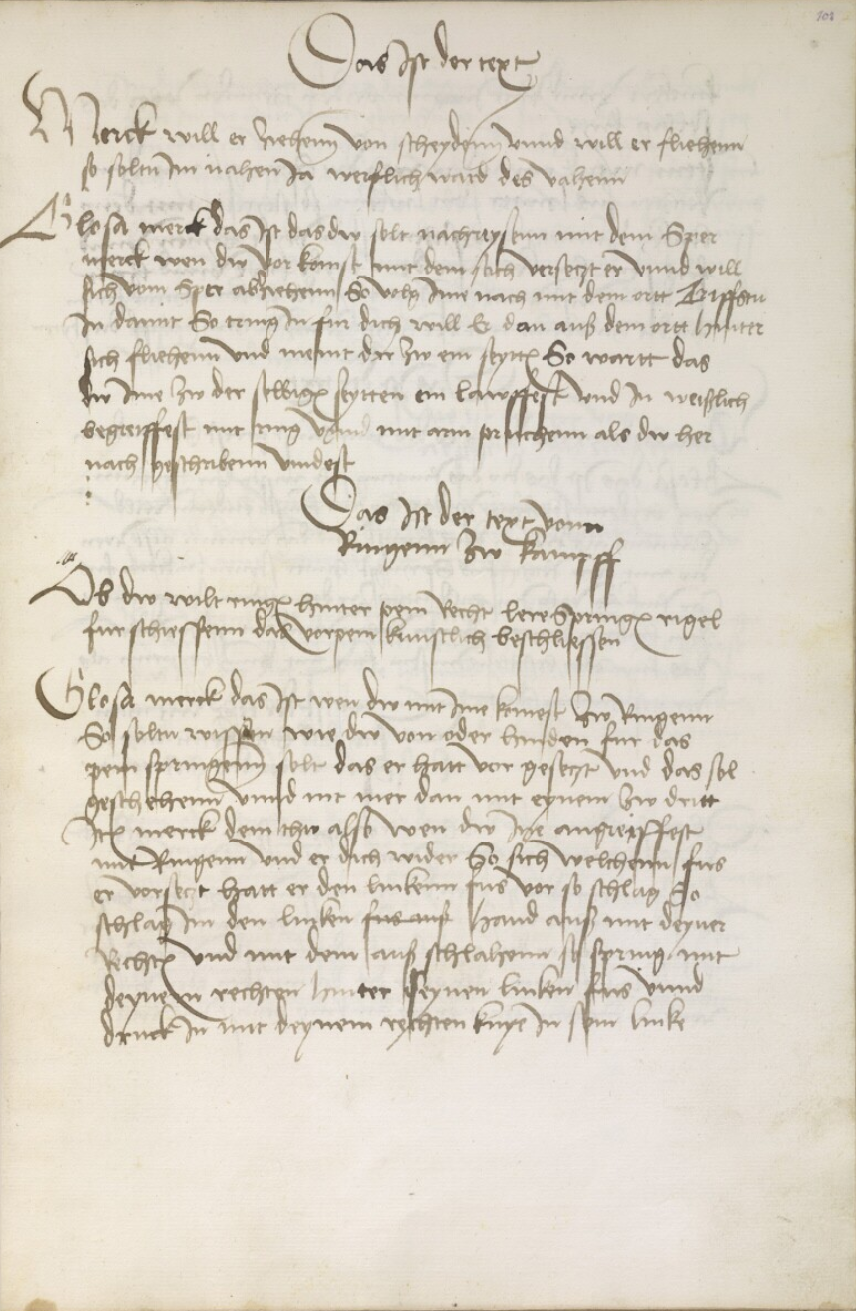 101
Das ist der text
Merck will er ziehenn von scheydenn vnnd will er fliehenn
so soltu im nahen Ja werflich ward des vahenn
Glosa merck das ist das dw solt nachreysenn mit dem Sper
merck wen dw vor komst mit dem stich versetzt er vnnd will
sich vom Sper abziehenn So volg ime nach mit dem ortt
In damit So tring in fur dich will Er dan auß dem ortt hinter
sich fliehenn vnd meint dir zw ein seytt So wartt das
dw ime zw der selbigen seytten ein lawffest vnd in weißlich
begreiffest mit ring vnnd mit arm pruchenn als dw her
nach geschribenn vindest
Das ist der text vonn
Ringenn zw kampff
Ob dw wilt ringen hinter pein Recht lere Springen rigel
fur schiessenn das vorpein kunstlich beschliessen
Glosa merck das ist wen dw mit ime komest zw Ringenn
So soltu wissen wie dw von oder hinden fur das
pein springenn solt das er hatt vor gesetzt vnd das sol
geschehenn vnnd nit mer dan mit eynem zw dritt
Itm merck dem thw also wen dw ine angreiffest
mit Ringenn vnd er dich wider So sich welchenn fus
er vorsetzt hatt er den linkenn fus vor so schlag So
schlag im den linken fus auß hand auß mit deyner
Rechten vnd mit dem auß schlahenn so spring mit
deynem rechten hinter seynen linken fus vnnd
druck in mit deynem rechten knye in sein linke